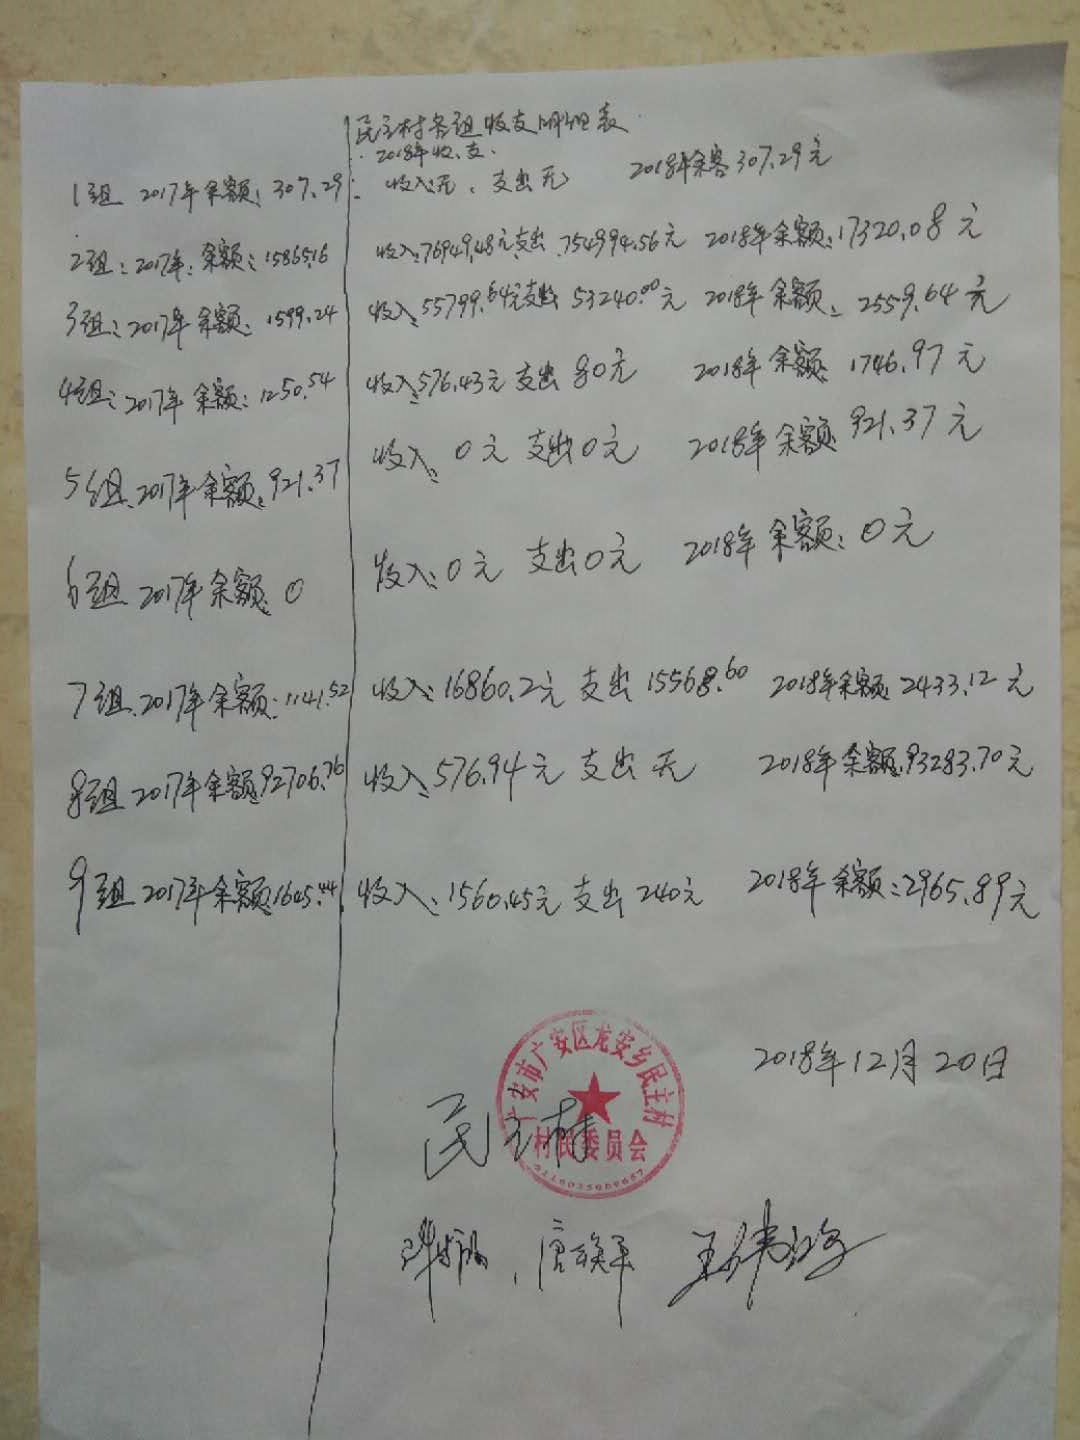 民主村各组收支明细表
2018年收、支.
1组 2017年余额: 307.29. 收入:无. 支出无 2018年余客307.29元
2组:2017年:余额:15865.16 收入:76949.48元支出.754994.56元 2018年余额:17320.08元
3组:2017年余额:1599.24 收入:55799.64元支出 53240.00元 2018年余额:2559.64元
4组:2017年余额:1250.54 收入:576.43元 支出 80元 2018年余额:1746.97元
5组.2017年余额:921.37 收入:0元 支出0元 2018年余额921.37元
6组 2017年余额:0 收入:0元 支出0元 2018年余额:0元
7组.2017年余额:1141.52 收入:16860.2元 支出 15568.60 2018年余额:2433.12元
8组 2017年余额:92706.76 收入:576.94元 支出 无 2018年余额:93283.70元
9组 2017年余额:1645.44 收入:1560.45元 支出 240元 2018年余额:2965.89元
2018年12月20日
广安市广安区龙安乡民主村
村民委员会
民主村
唐焕平